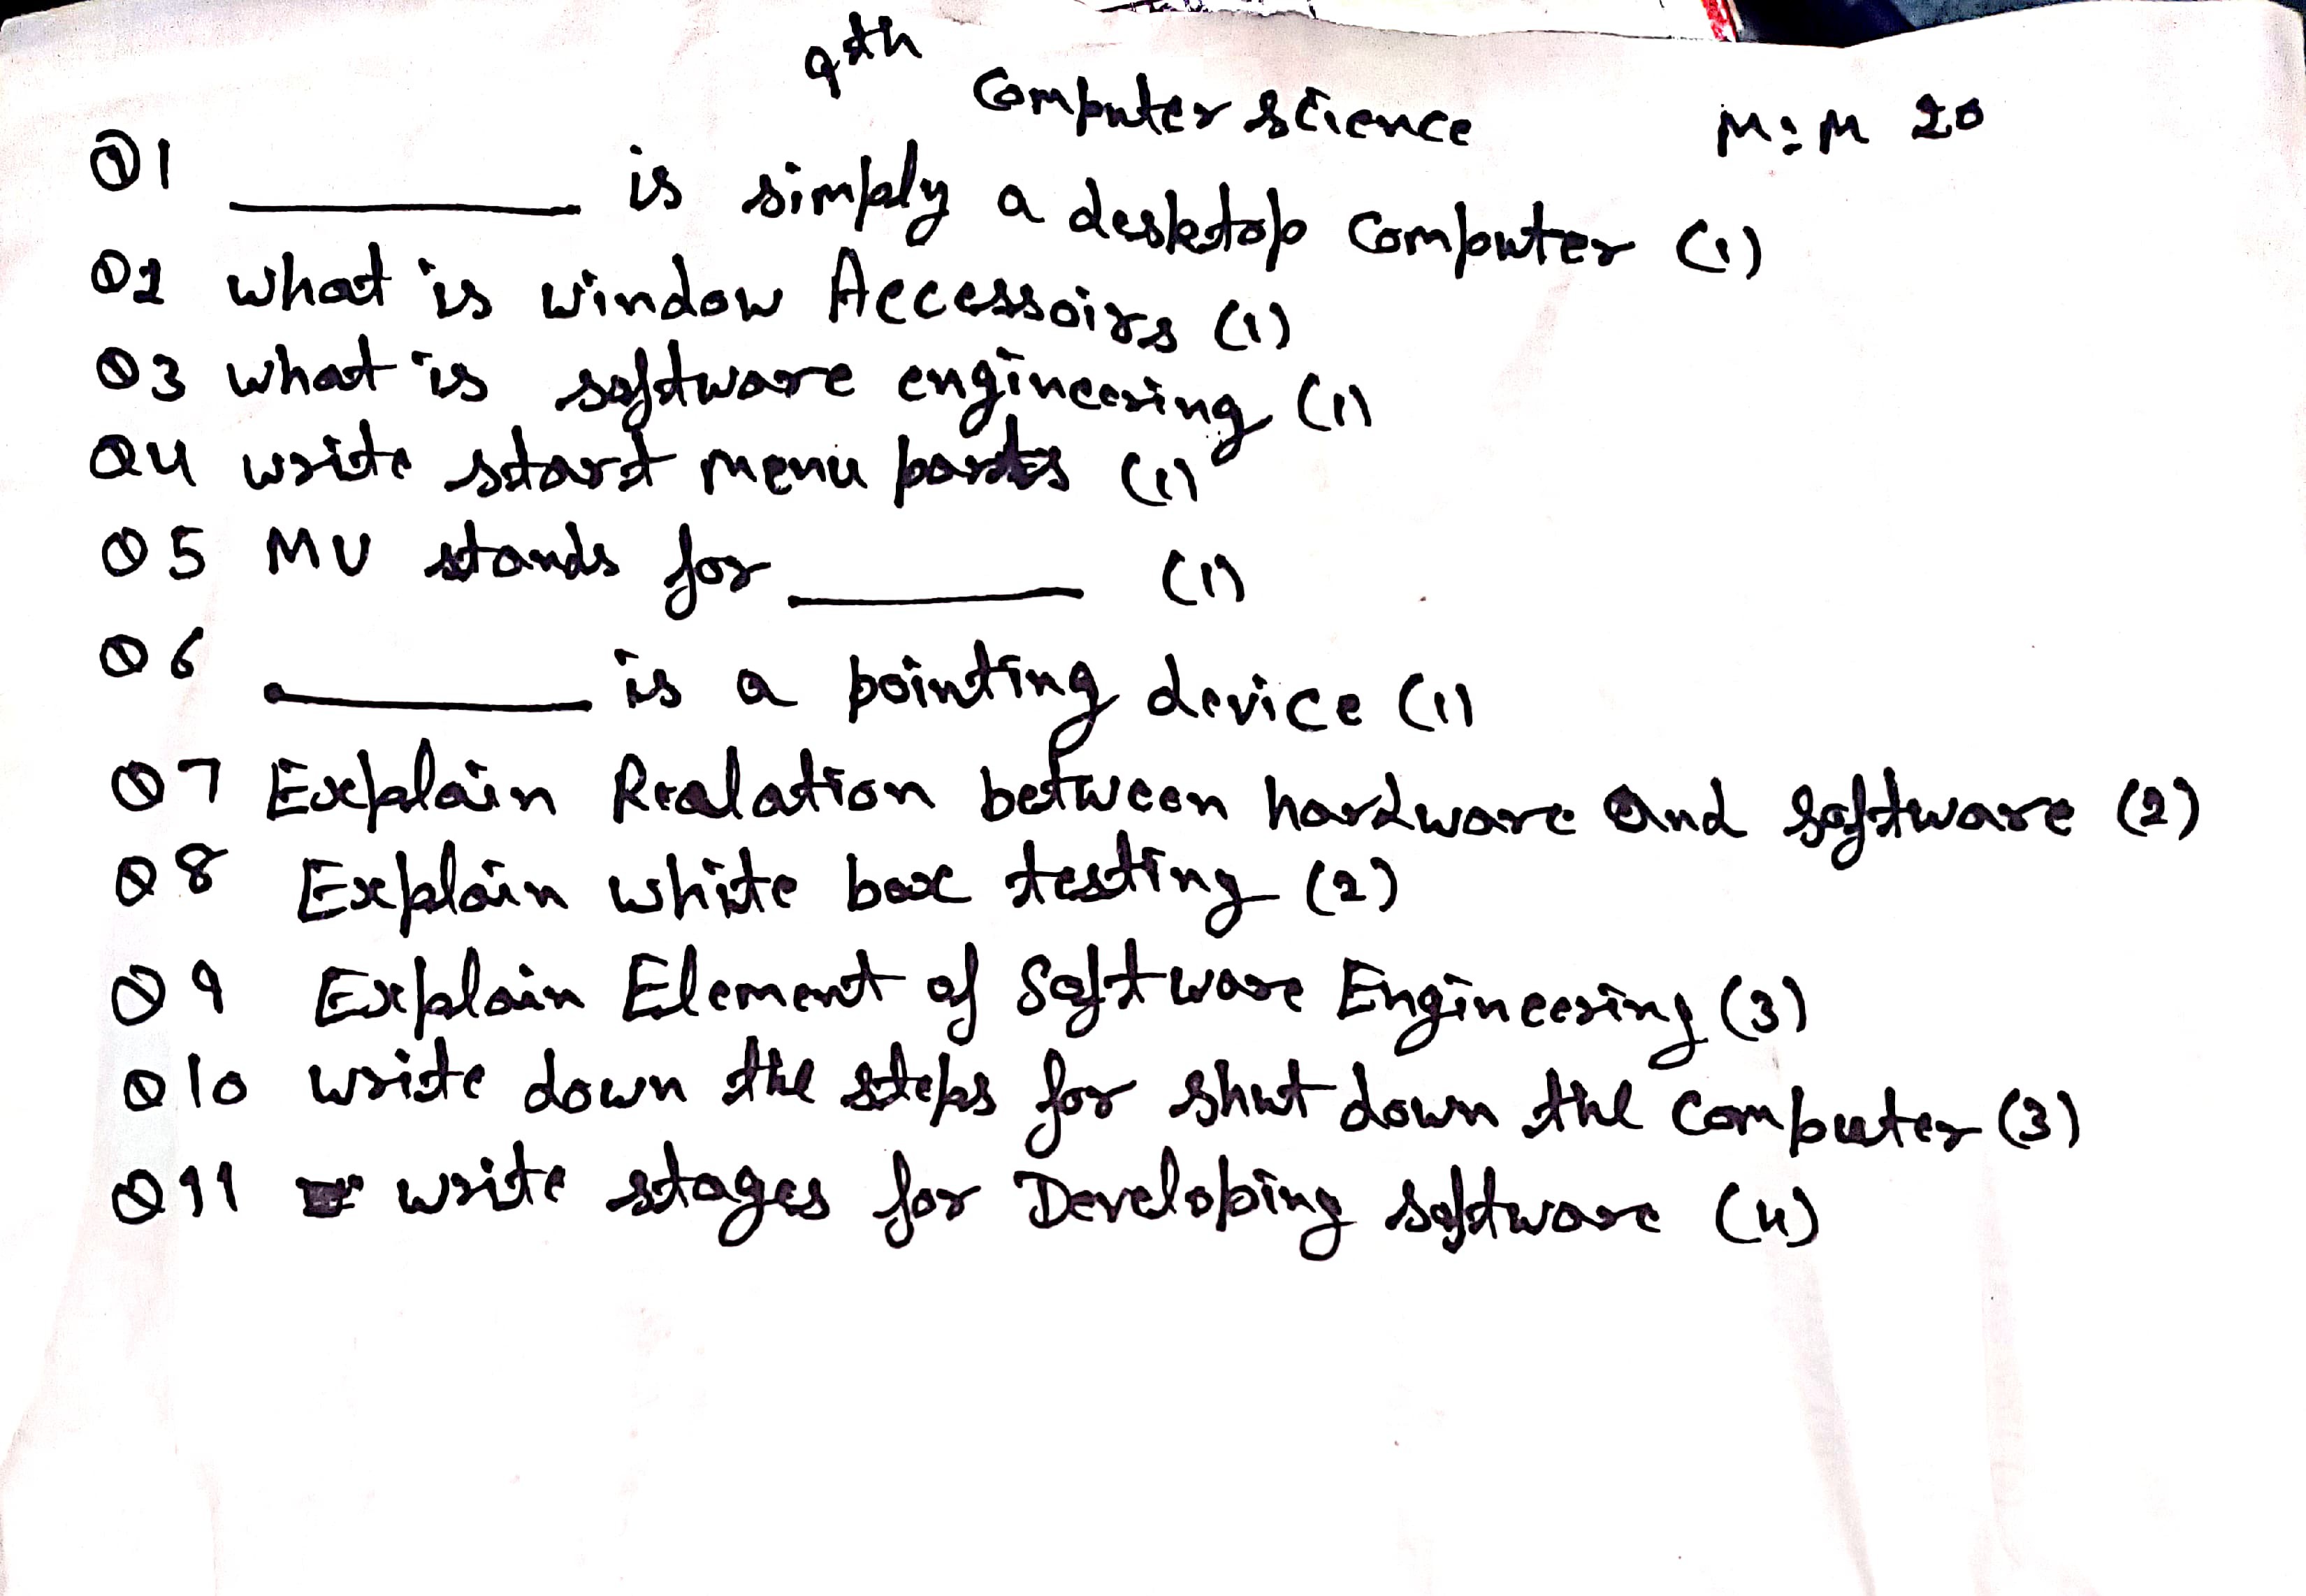 9th
Computer Science M:M 20
Q1 ________ is simply a desktop Computer (1)
Q2 what is window Accessoirs (1)
Q3 what is software engineering (1)
Q4 write start menu parts (1)
Q5 MU stands for ________ (1)
Q6 ________ is a pointing device (1)
Q7 Explain Realation between hardware and software (2)
Q8 Explain white box testing (2)
Q9 Explain Element of Software Engineering (3)
Q10 write down the steps for shut down the Computer (3)
Q11 write stages for Developing software (4)